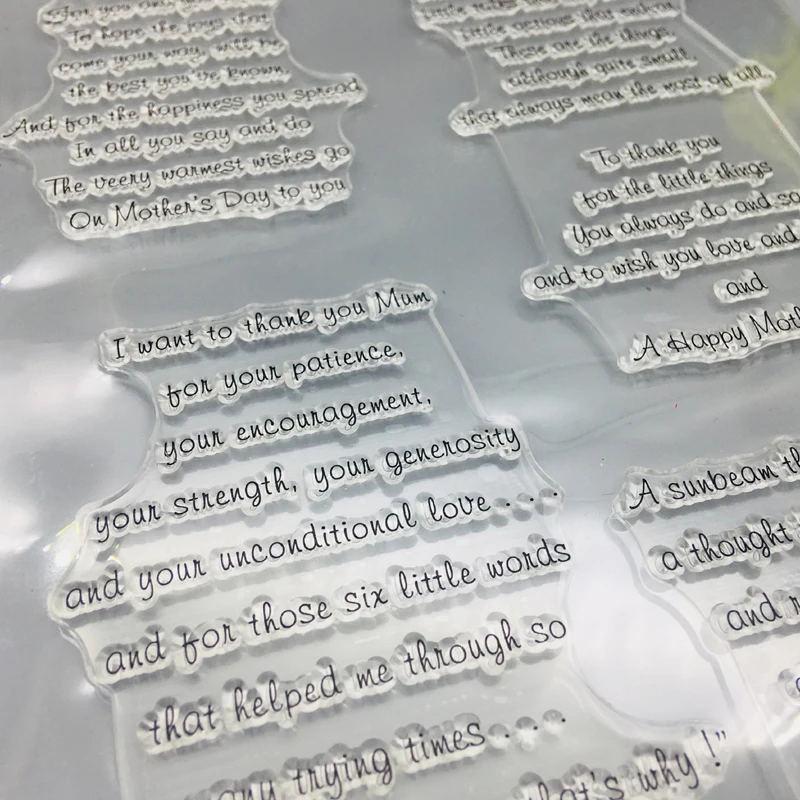 For you and
To hope the joys that
come your way will be
the best you've known
And for the happiness you spread
In all you say and do
The veery warmest wishes go
On Mother's Day to you
little
little actions that
These are the things,
although quite small
that always mean the most of all,
To thank you
for the little things
You always do and
and to wish you love and
and
A Happy
I want to thank you Mum
for your patience,
your encouragement,
your strength, your generosity
and your unconditional love . . . .
and for those six little words
that helped me through so
any trying times . . . .
that's why !"
A sunbeam
a thought
and